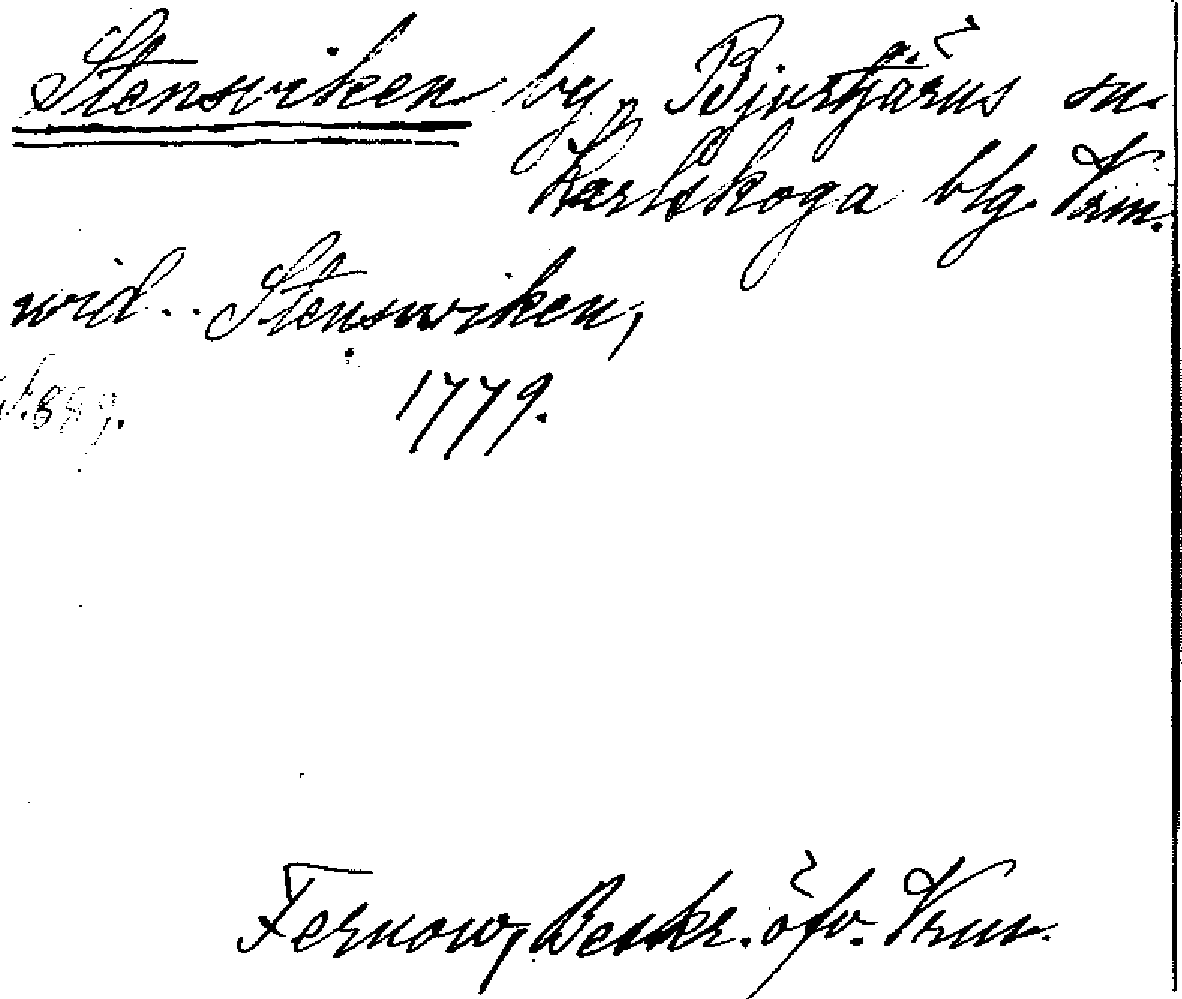 Stensviken by, Bjurtjärns sn.
Karlskoga blg. Vrm.
wid .. Stenswiken,
1779.
Fernow, Beskr. öfv. Vrm.